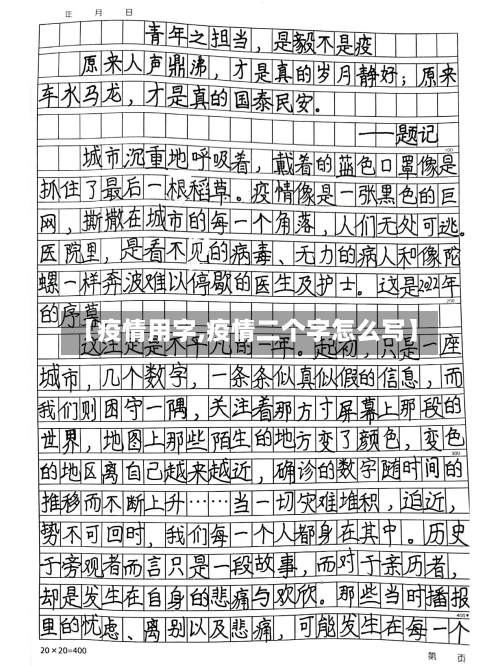 年 月 日
青年之担当，是毅不是疫
原来人声鼎沸，才是真的岁月静好；原来
车水马龙，才是真的国泰民安。
——题记
100
城市沉重地呼吸着，戴着的蓝色口罩像是
抓住了最后一根稻草。疫情像是一张黑色的巨
网，撕撒在城市的每一个角落，人们无处可逃。
医院里，是看不见的病毒、无力的病人和像陀
螺一样奔波难以停歇的医生及护士。这是2022年
200
的序幕
【疫情用字,疫情二个字怎么写】
这注定是不平凡的一年。起初，只是一座
城市，几个数字，一条条似真似假的信息，而
我们则困守一隅，关注着那方寸屏幕上那段的
世界，地图上那些陌生的地方变了颜色，变色
300
的地区离自己越来越近，确诊的数字随时间的
推移而不断上升……当一切灾难堆积，迫近，
势不可回时，我们每一个人都身在其中。历史
于旁观者而言只是一段故事，而对于亲历者，
却是发生在自身的悲痛与欢欣。那些当时播报
400
里的忧虑、离别以及悲痛，可能发生在每一个
20×20=400
第 页